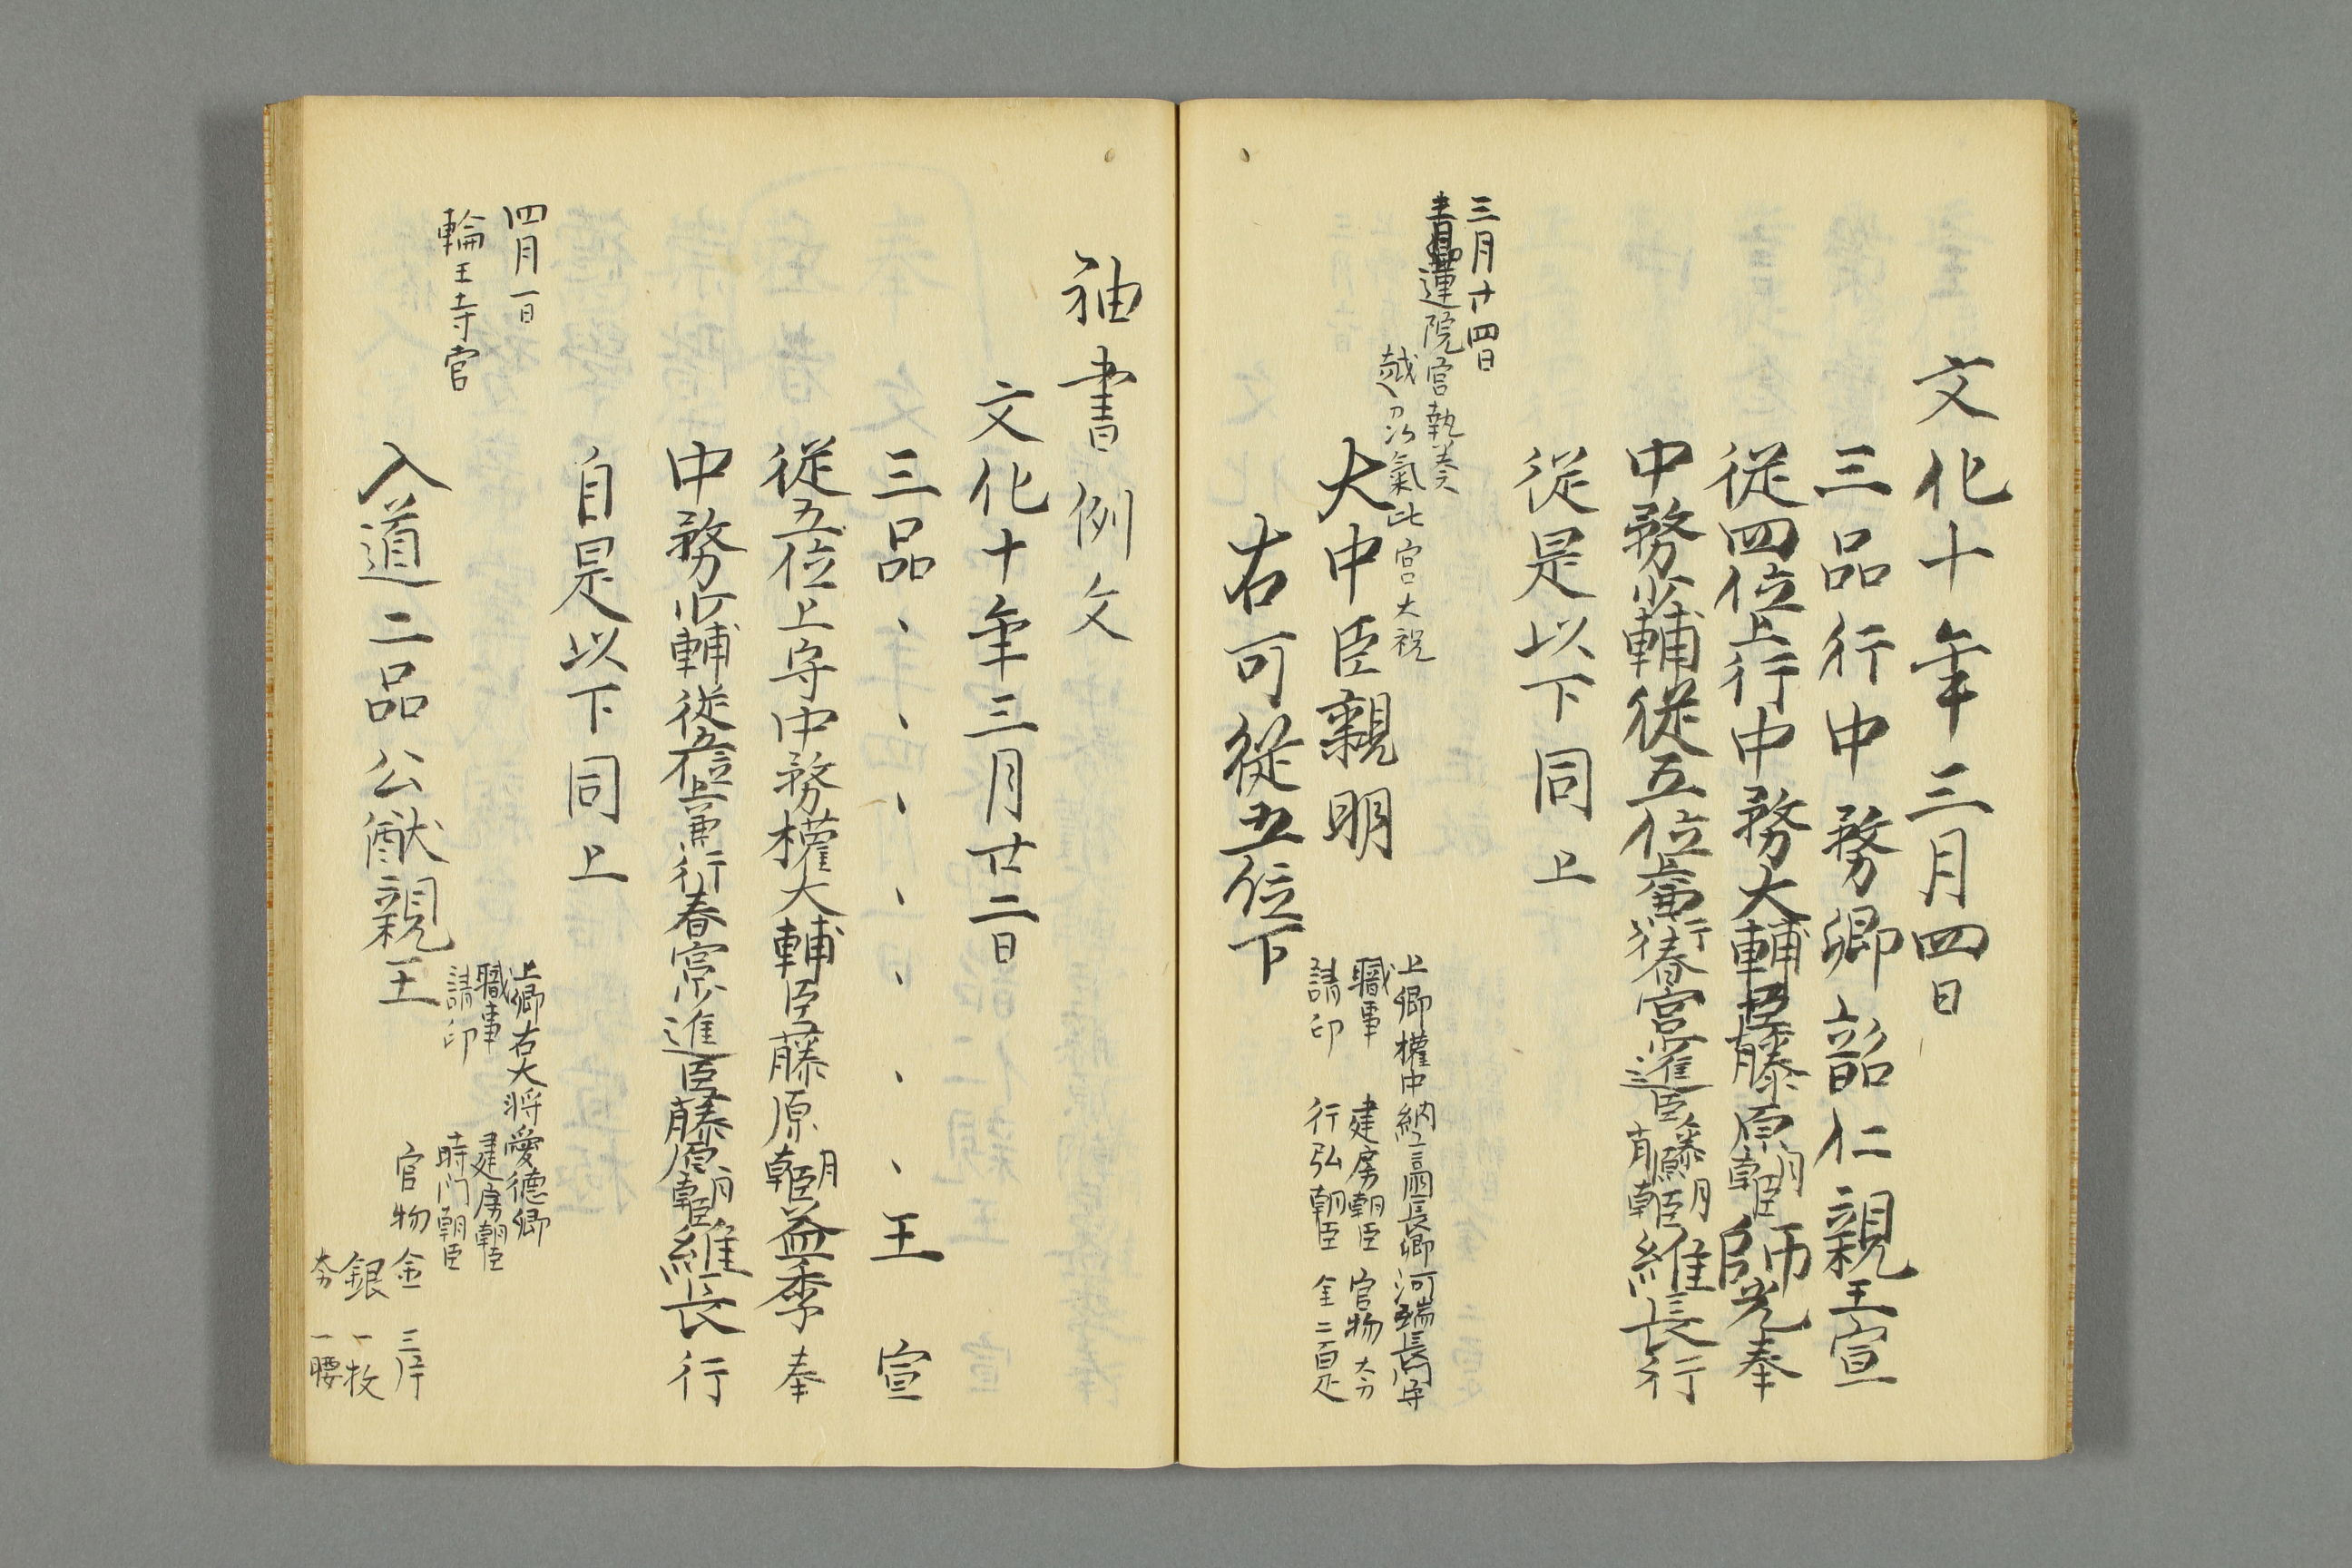 文化十年三月四日
三品行中務卿韶仁親王宣
従四位上行中務大輔臣藤原朝臣師光奉
中務少輔従五位上兼行春宮進臣藤原朝臣維長行
従是以下同上
三月廿四日
青蓮院宮執奏
越前氣比宮大祝
大中臣親明
右可従五位下
上卿権中納言長卿河端長門守
職事 建房朝臣 官物
請印 行弘朝臣 金二百疋
袖書例文
文化十年三月廿二日
三品、、、、、、王 宣
従五位上守中務権大輔臣藤原朝臣益季奉
中務少輔従五位上兼行春宮進臣藤原朝臣維長行
自是以下同上
四月一日
輪王寺宮
入道二品公猷親王
上卿右大将愛徳卿
職事 建房朝臣
請印 時門朝臣
官物 金 三片
銀 一枚
一腰